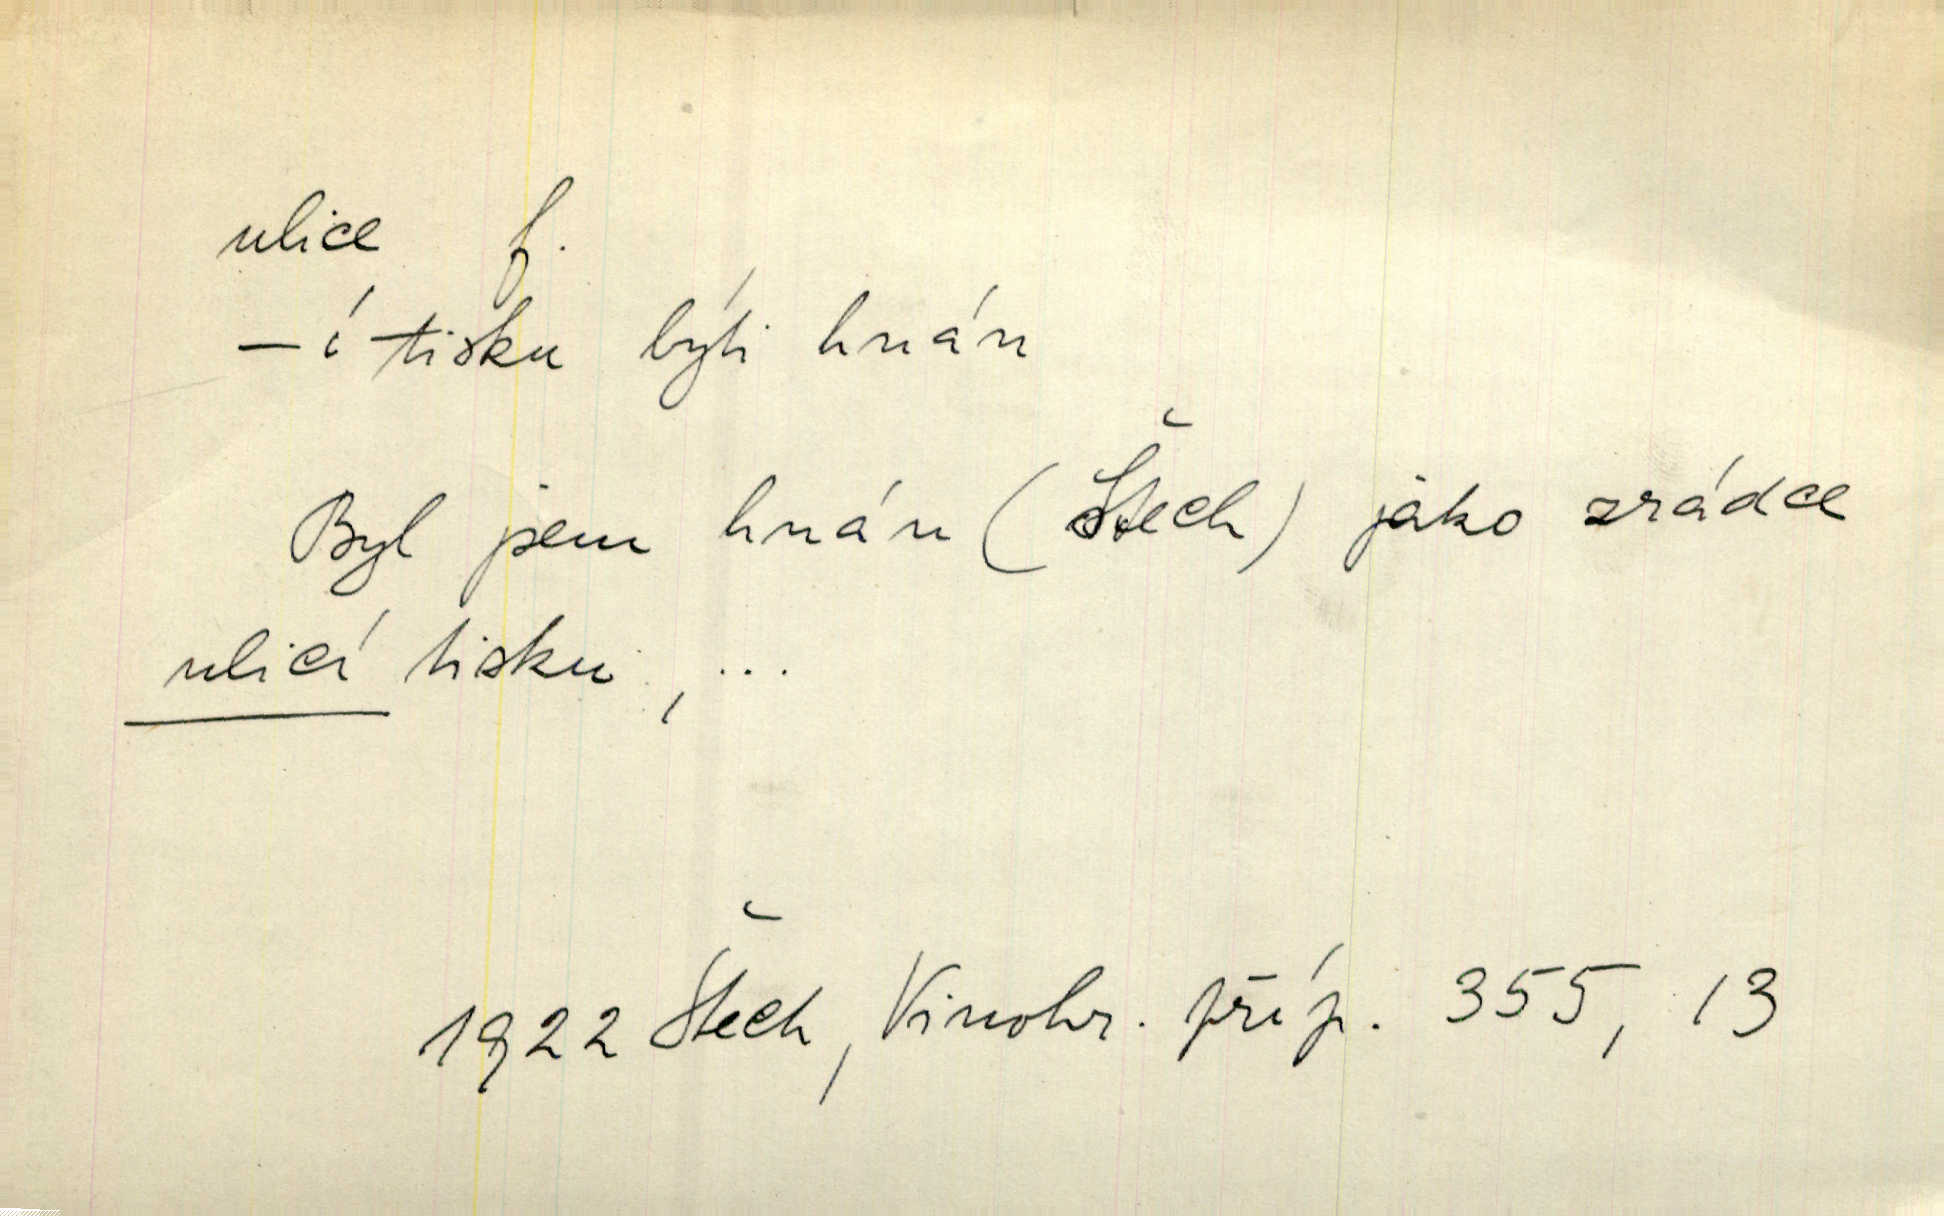 ulice f.
–í tisku býti hnán
Byl jsem hnán (Štech) jako zrádce
ulicí tisku, ...
1922 Štech, Vinohr. příp. 355, 13